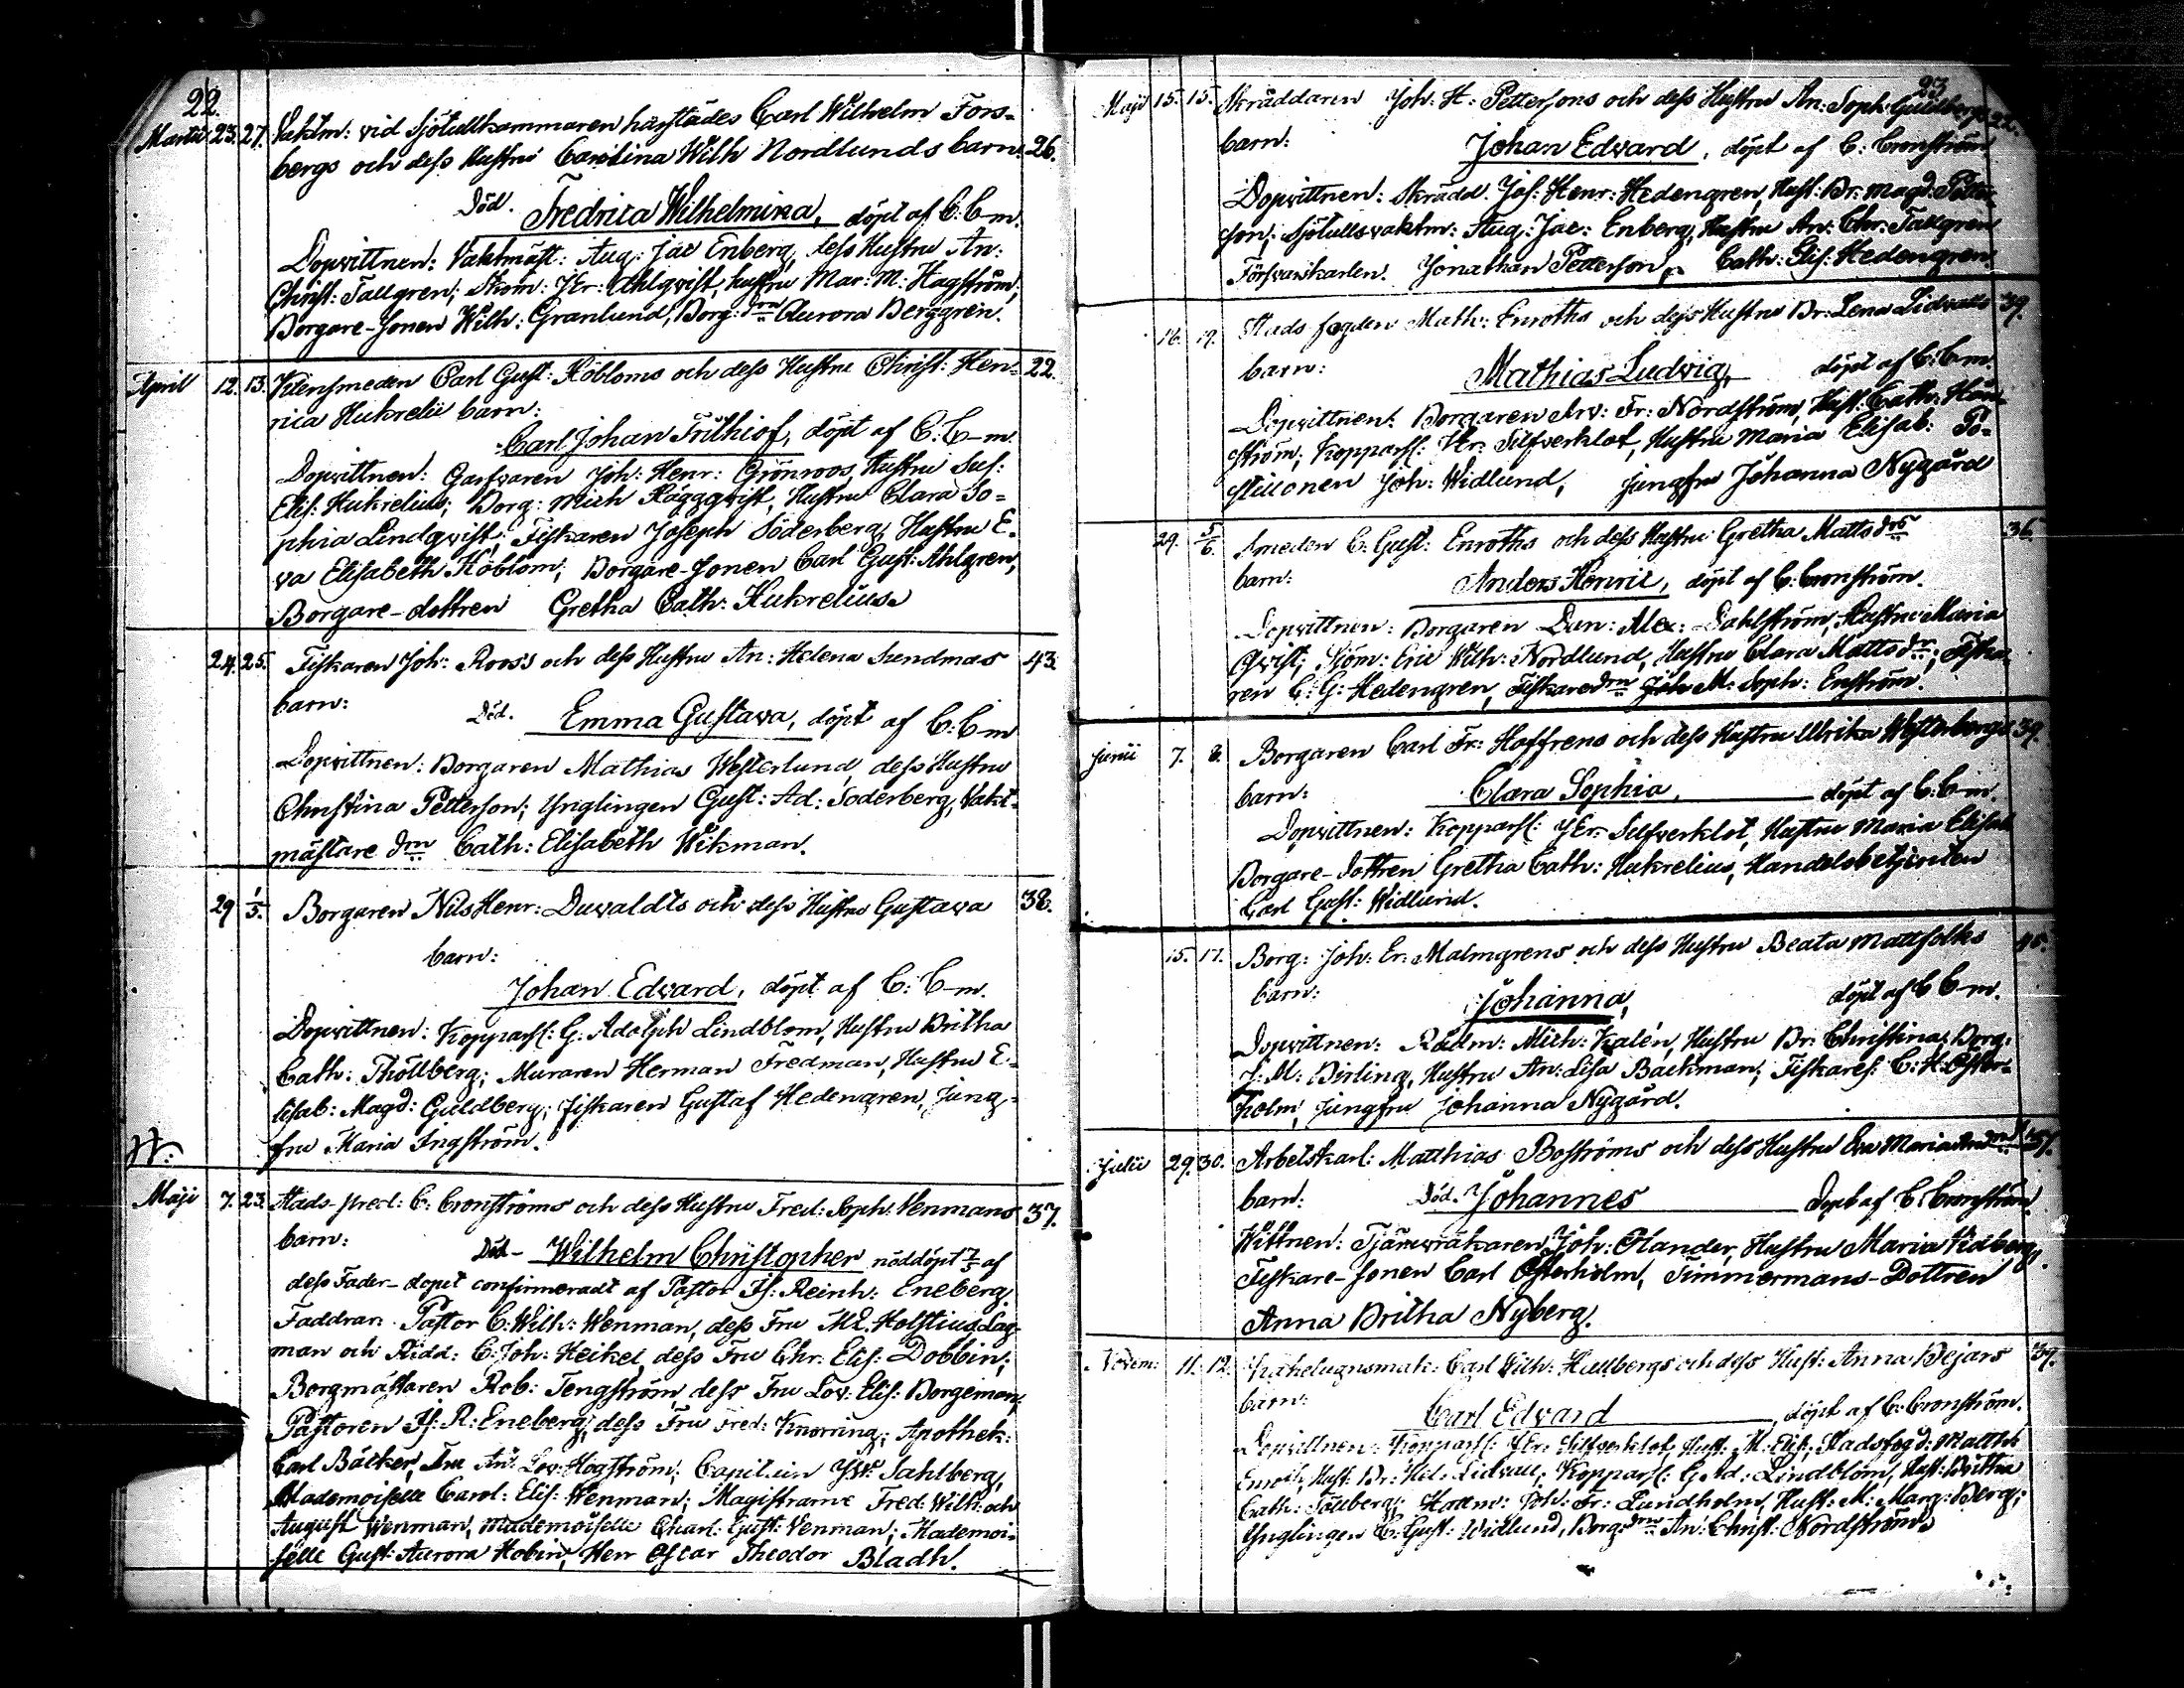 22.
Martii 23. 27. Vaktm: vid Sjötullkammaren härstädes Carl Wilhelm Fors-
bergs och dess Hustrus Carolina Wilh Nordlunds barn: 26.
Död. Fredrica Wilhelmina, döpt af C: C-m.
Dopvittnen: Vaktmäst: Aug: Jac Enberg, dess Hustru An:
Christ: Tallgren; Skom: Er: Ahlqvist, hustru Mar: M: Hagström;
Borgare-sonen Wilh: Granlund, Borg: drn Aurora Berggren.
April 12. 13. Klensmeden Carl Gust: Köbloms och dess Hustru Christ: Hen- 22.
rica Hukrelii barn:
Carl Johan Frithiof, döpt af C: C-m.
Dopvittnen: Garfvaren Joh: Henr: Grönroos, Hustru Sus:
Elis: Hukrelius; Borg: Mich Häggqvist, Hustru Clara So-
phia Lindqvist; Fiskaren Joseph Söderberg, Hustru E-
va Elisabeth Köblom; Borgare-Sonen Carl Gust: Ahlgren,
Borgare-dottren Gretha Cath: Hukrelius.
24. 25. Fiskaren Joh: Roos's och dess Hustru An: Helena Sundmas 43
barn:
Död. Emma Gustava, döpt af C: C-m
Dopvittnen: Borgaren Mathias Westerlund, dess Hustru
Christina Petterson; Ynglingen Gust: Ad: Söderberg, Vakt-
mästare drn Cath: Elisabeth Wikman.
29 1/5. Borgaren Nils Henr: Duvaldts och dess Hustru Gustava 38.
barn:
Johan Edvard, döpt af C: C-m.
Dopvittnen: Kopparsl: G: Adolph Lindblom, Hustru Britha
Cath: Thöllberg; Muraren Herman Fredman, Hustru E-
lisab: Magd: Guldberg; Fiskaren Gustaf Hedengren, Jung-
fru Maria Ingström.
Maji 7. 23. Stads-pred: C: Cronströms och dess Hustru Fred: Soph: Venmans 37.
barn:
Död- Wilhelm Christopher nöddöpt 7/5 af
dess Fader- dopet confirmeradt af Pastor Is: Reinh: Eneberg.
Faddrar: Pastor C: Wilh: Wenman, dess Fru M L. Holstius, Lag-
man och Ridd: C: Joh: Heikel, dess Fru Chr: Elis: Dobbin;
Borgmästaren Rob: Tengström, dess Fru Lov: Elis: Borgeman,
Pastoren Is: R: Eneberg, dess Fru Fred: Knorring; Apothek:
Carl Bäcker, Fru An: Lov: Hogström; Capitain Sahlberg,
Mademoiselle Carol: Elis: Wenman; Magistrarne Fred: Wilh: och
August Wenman, Mademoiselle Charl: Gust: Venman; Mademoi-
selle Gust: Aurora Hobin, Herr Oscar Theodor Bladh.
23
Maji 15. 15. Skräddaren Joh: H: Pettersons och dess Hustru An: Soph: Guldbergs 22.
barn: Johan Edward, döpt af C: Cronström
Dopvittnen: Skrädd: Jos: Henr: Hedengren, Hust: Br: Magd: Petter-
son; Sjötullsvaktm: Aug: Jac: Enberg, Hustru An: Chr: Tallgren
Försvarskarlen: Jonathan Petterson, Cath: Elis: Hedengren.
16. 19. Stads fogden Math: Enroths och dess Hustru Br: Lena Lidvalls 39.
barn: Mathias Ludvig, döpt af C: C-m.
Dopvittnen: Borgaren Arv: Fr: Nordström, Hust: Cath:
ström; Kopparsl: Er: Silfverklot, Hustru Maria Elisab: Po-
stilionen Joh: Widlund, jungfru Johanna Nygård
29. 5/6. Smeden C: Gust: Enroths och dess Hustru Gretha Matts drs 36.
barn: Anders Henric, döpt af C: Cronström.
Dopvittnen: Borgaren Dan: Alex: Dahlström, Hustru Maria
Qvist; Sjöm: Eric Wilh: Nordlund, Hustru Clara Matts dr; Fiska-
ren C: G: Hedengren, Fiskare drn M: Soph: Enström.
Junii 7. 8. Borgaren Carl Fr: Hoffrens och dess Hustru Ulrika Westerbergs 39.
barn: Clara Sophia, döpt af C: C-m.
Dopvittnen: Kopparsl: Er: Silfverklot, Hustru Maria Elisab
Borgare-Dottren Gretha Cath: Hukrelius, Handelsbetjenten
Carl Gust: Widlund.
15. 17. Borg: Joh: Er: Malmgrens och dess Hustru Beata Mattsolks
barn: Johanna, döpt af C C-m.
Dopvittnen: Rådm: Mich: Kalén, Hustru Br: Christina; Borg:
J: M: Birling, Hustru An: Lisa Backman; Fiskares: C: H: Öster-
holm, jungfru Johanna Nygård.
Julii 29. 30. Arbetskarl: Matthias Boströms och dess Hustru Eva Maria
barn: Död. Johannes Döpt af C: Cronström.
Wittnen: Tjärvräkaren Joh: Olander, Hustru Maria Widberg,
Fiskare-Sonen Carl Österholm, Timmermans-Dottren
Anna Britha Nyberg.
Novem: 11. 12. Kakelugnsmak: Carl Wilh: Hallbergs och dess Hust: Anna Bejars 37.
barn: Carl Edvard, döpt af C: Cronström.
Dopvittnen: Kopparsl: Er: Silfverklot, Hust: M: Elis; Stadsfogd: Matth:
Enroth, Hust: Br: Hel: Lidvall; Kopparsl: G Ad: Lindblom, Hust: Britha
Cath: Tölberg; Joh: Fr: Lundholm, Hust: M: Marg: Berg;
Ynglingen C: Gust: Widlund, Borg: drn An: Christ: Nordström.